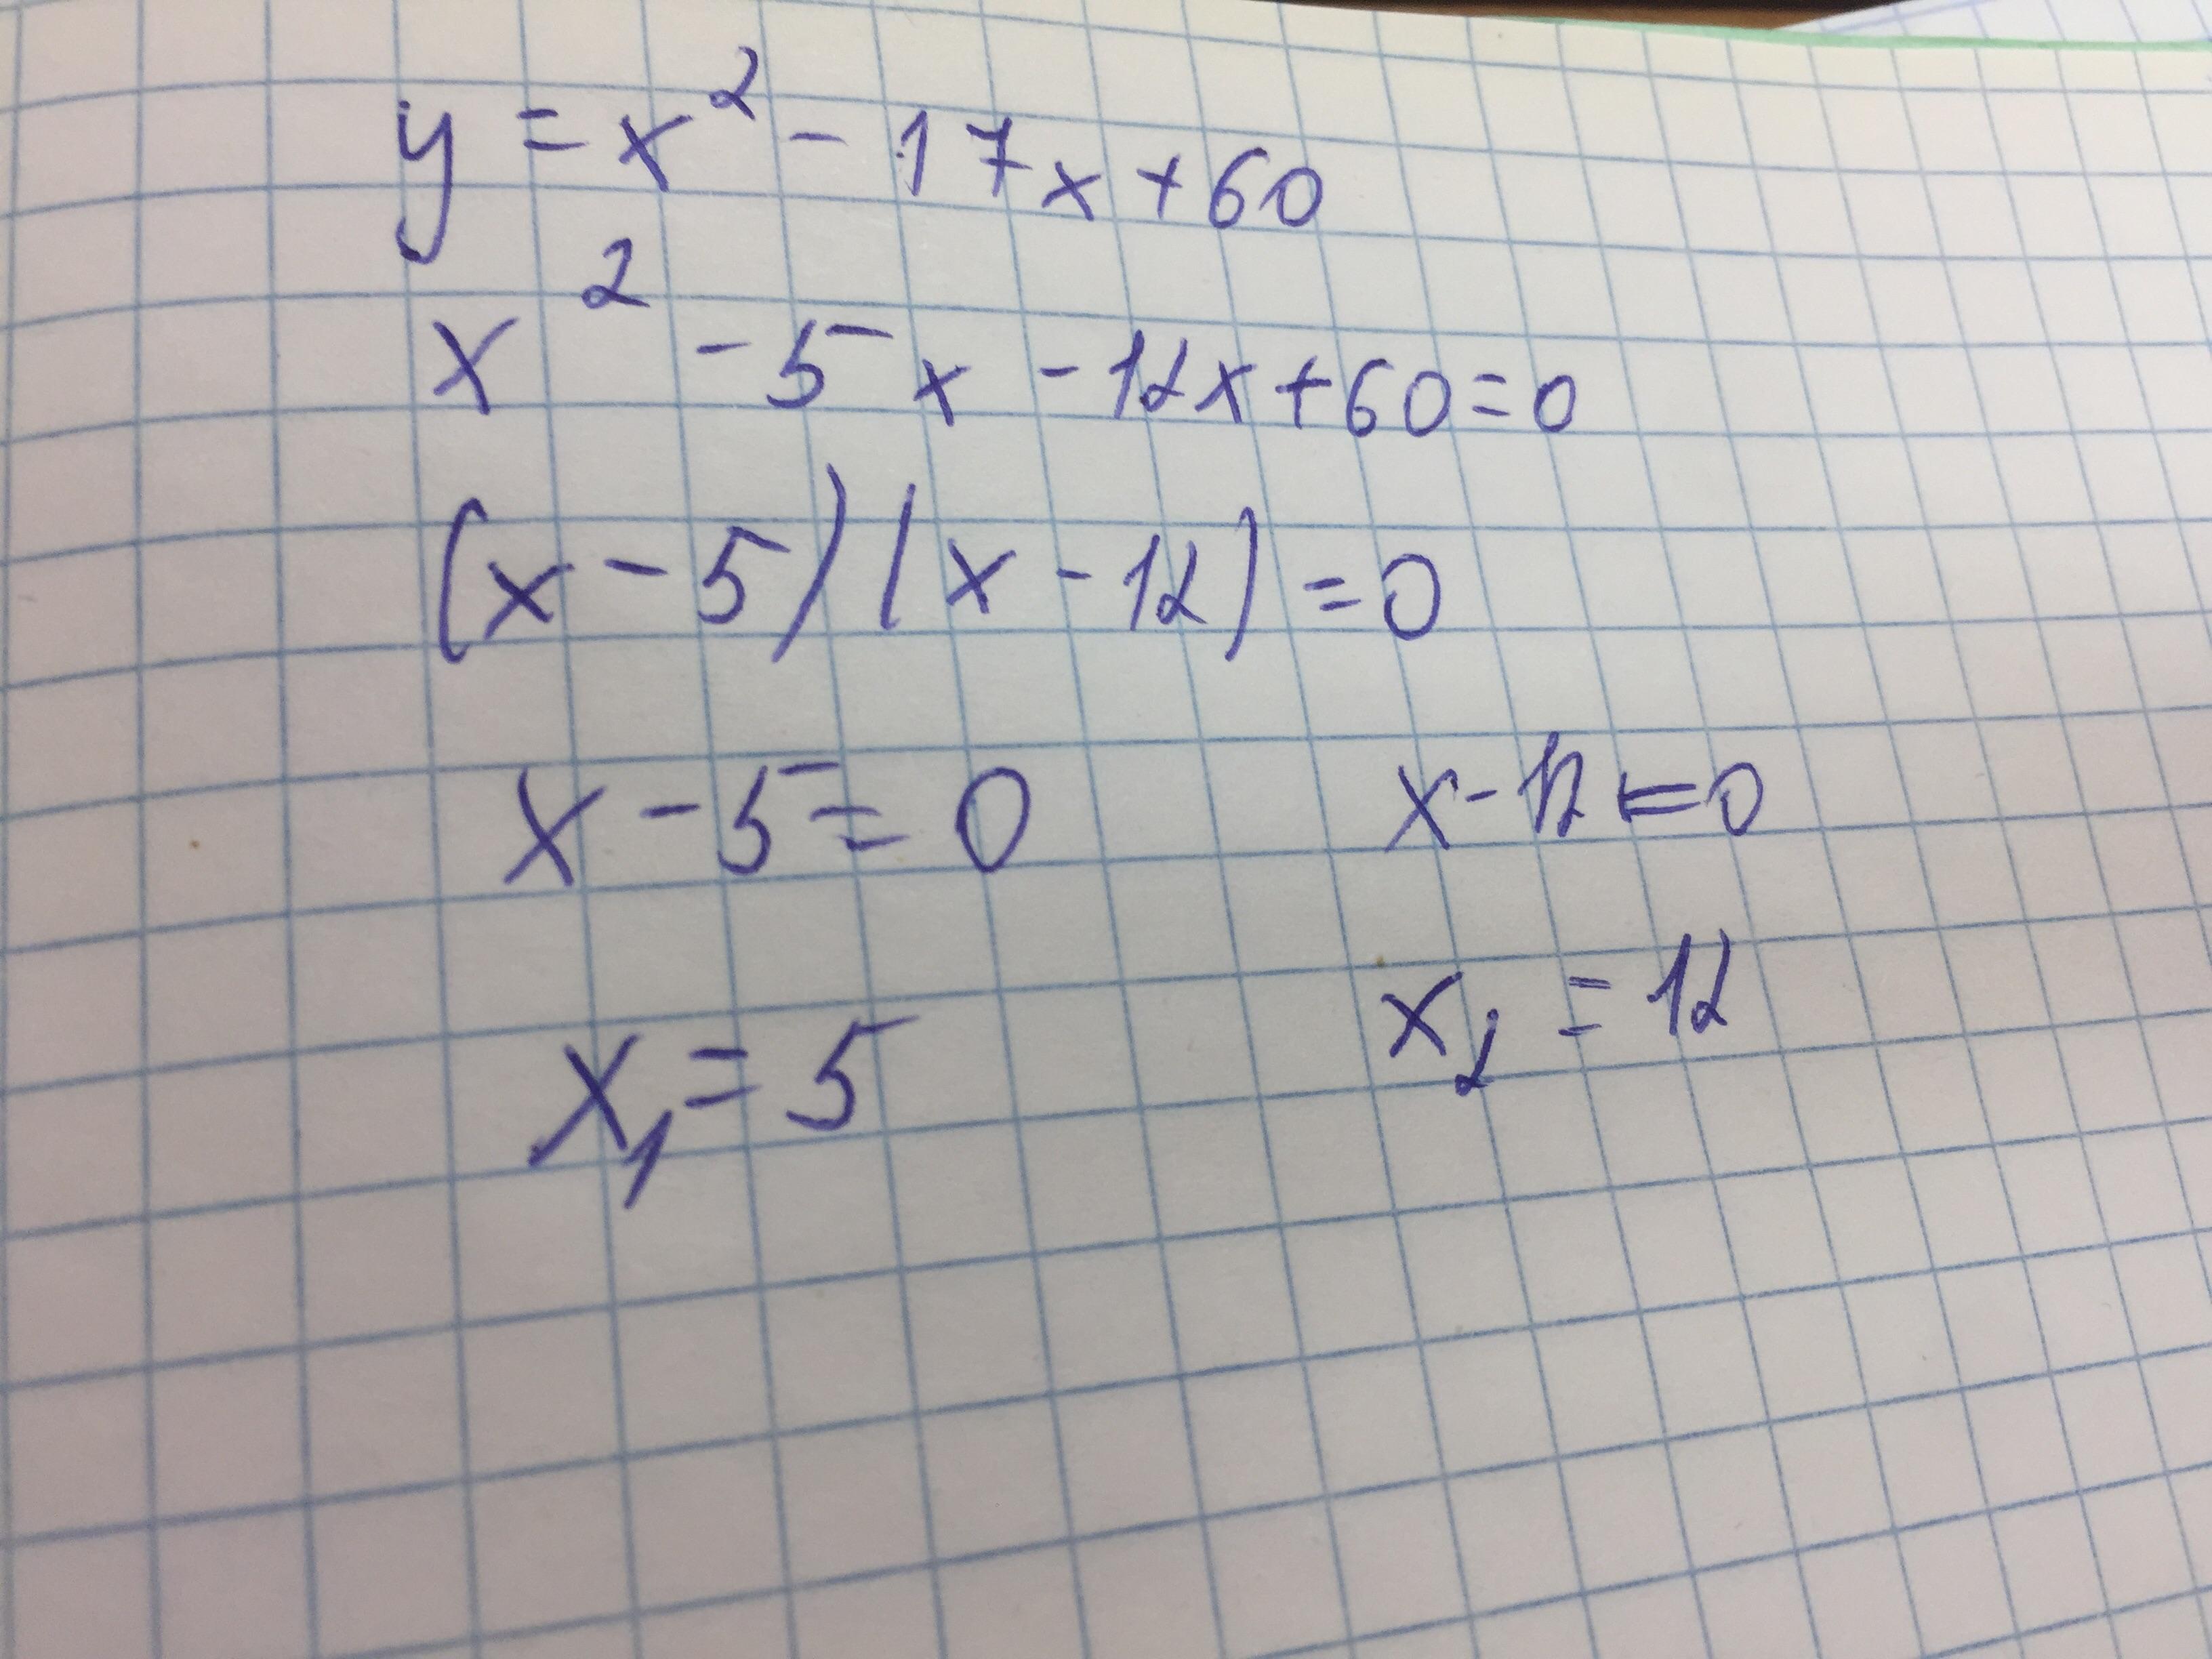 y = x² - 17x + 60
x² - 5x - 12x + 60 = 0
(x - 5)(x - 12) = 0
x - 5 = 0 x - 12 = 0
x₁ = 5 x₂ = 12